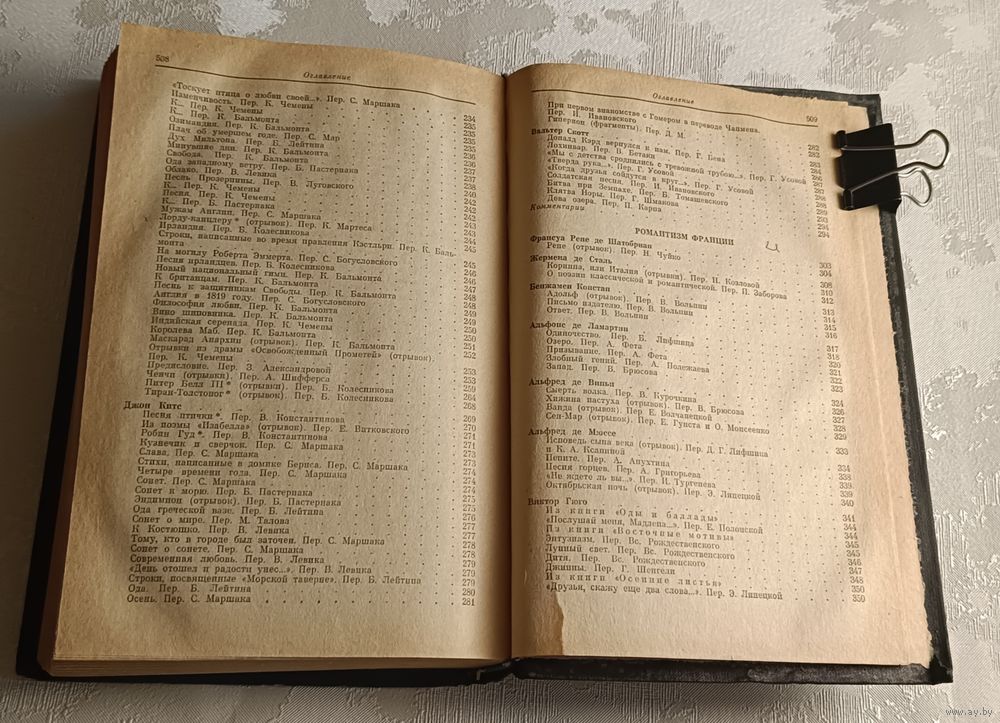 508
Оглавление
«Тоскует птица о любви своей...». Пер. С. Маршака
Изменчивость. Пер. К. Чемены 234
К... Пер. К. Чемены 235
К... Пер. К. Бальмонта 235
Озимандия. Пер. К. Бальмонта 235
Плач об умершем годе. Пер. С. Мар
Дух Мильтона. Пер. Б. Лейтина
Минувшие дни. Пер. К. Бальмонта
Свобода. Пер. К. Бальмонта
Ода западному ветру. Пер. Б. Пастернака
Облако. Пер. В. Левика
Песнь Прозерпины. Пер. В. Луговского
К... Пер. К. Чемены
Песня. Пер. К. Чемены
К... Пер. Б. Пастернака
Мужам Англии. Пер. С. Маршака
Лорду-канцлеру * (отрывок). Пер. К. Мартеса
Ирландия. Пер. Б. Колесникова
Строки, написанные во время правления Кэстльри. Пер. К. Баль-
монта 245
На могилу Роберта Эммерта. Пер. С. Богусловского
Песня ирландцев. Пер. Б. Колесникова
Новый национальный гимн. Пер. К. Бальмонта
К британцам. Пер. К. Бальмонта
Песнь к защитникам Свободы. Пер. К. Бальмонта
Англия в 1819 году. Пер. С. Богусловского
Философия любви. Пер. К. Бальмонта
Вино шиповника. Пер. К. Бальмонта
Индийская серенада. Пер. К. Чемены
Королева Маб. Пер. К. Бальмонта
Маскарад Анархии (отрывок). Пер. К. Бальмонта
Отрывки из драмы «Освобожденный Прометей» (отрывок).
Пер. К. Чемены
Предисловие. Пер. З. Александровой 253
Ченчи (отрывки). Пер. А. Шифферса 253
Питер Белл III * (отрывки). Пер. Б. Колесникова 264
Тиран-Толстоног * (отрывок). Пер. Б. Колесникова 268
Джон Китс
Песня птички *. Пер. В. Константинова 269
Из поэмы «Изабелла» (отрывок). Пер. Е. Витковского 270
Робин Гуд *. Пер. В. Константинова 271
Кузнечик и сверчок. Пер. С. Маршака 271
Слава. Пер. С. Маршака 273
Стихи, написанные в домике Бернса. Пер. С. Маршака 273
Четыре времени года. Пер. С. Маршака 274
Сонет. Пер. С. Маршака 274
Сонет к морю. Пер. Б. Пастернака 274
Эндимион (отрывок). Пер. Б. Пастернака 275
Ода греческой вазе. Пер. Б. Лейтина 275
Сонет о мире. Пер. М. Талова 276
К Костюшко. Пер. В. Левика 277
Тому, кто в городе был заточен. Пер. С. Маршака 277
Сонет о сонете. Пер. С. Маршака 278
Современная любовь. Пер. В. Левика 278
«День отошел и радости унес...». Пер. В. Левика 279
Строки, посвященные «Морской таверне». Пер. Б. Лейтина 279
Ода. Пер. Б. Лейтина 280
Осень. Пер. С. Маршака 281
Оглавление
509
При первом знакомстве с Гомером в переводе Чапмена.
Пер. И. Ивановского
Гиперион (фрагменты). Пер. Д. М.
Вальтер Скотт
Доналд Кэрд вернулся к нам. Пер. Г. Бена
Лохинвар. Пер. В. Бетаки
«Мы с детства сроднились с тревожной трубою...». Пер. Г. Усовой
«Тверда рука...». Пер. Г. Усовой
«Когда друзья сойдутся в круг...». Пер. Г. Усовой
Солдатская песня. Пер. И. Ивановского
Битва при Земпахе. Пер. Б. Томашевского
Клятва Норы. Пер. Г. Шмакова
Дева озера. Пер. П. Карпа
Комментарии
РОМАНТИЗМ ФРАНЦИИ
Франсуа Рене де Шатобриан
Рене (отрывок). Пер. Н. Чуйко 303
Жермена де Сталь 304
Коринна, или Италия (отрывки). Пер. Н. Козловой 308
О поэзии классической и романтической. Пер. П. Заборова 310
Бенжамен Констан 312
Адольф (отрывок). Пер. В. Вольпин
Письмо издателю. Пер. В. Вольпин 313
Ответ. Пер. В. Вольпин 314
Альфонс де Ламартин 315
Одиночество. Пер. Б. Лифшица 316
Озеро. Пер. А. Фета
Призывание. Пер. А. Фета 317
Злобный гений. Пер. А. Полежаева 318
Запад. Пер. В. Брюсова 320
Альфред де Виньи
Смерть волка. Пер. В. Курочкина
Хижина пастуха (отрывок). Пер. В. Брюсова 324
Ванда (отрывок). Пер. Е. Волчанецкой 326
Сен-Мар (отрывок). Пер. Е. Гунста и О. Моисеенко 327
Альфред де Мюссе
Исповедь сына века (отрывок). Пер. Д. Г. Лифшица
и К. А. Ксаниной 333
Пепите. Пер. А. Апухтина
Песня горцев. Пер. А. Григорьева 334
«Не ждете ль вы...». Пер. И. Тургенева 338
Октябрьская ночь (отрывок). Пер. Э. Липецкой 339
Виктор Гюго
Из книги «Оды и баллады» 341
«Послушай меня, Мадлена...». Пер. Е. Полонской 344
Из книги «Восточные мотивы» 344
Энтузиазм. Пер. Вс. Рождественского 345
Лунный свет. Пер. Вс. Рождественского 345
Дитя. Пер. Вс. Рождественского 346
Джинны. Пер. Г. Шенгели 347
Из книги «Осенние листья» 348
«Друзья, скажу еще два слова...». Пер. Э. Липецкой 350
www.ay.by